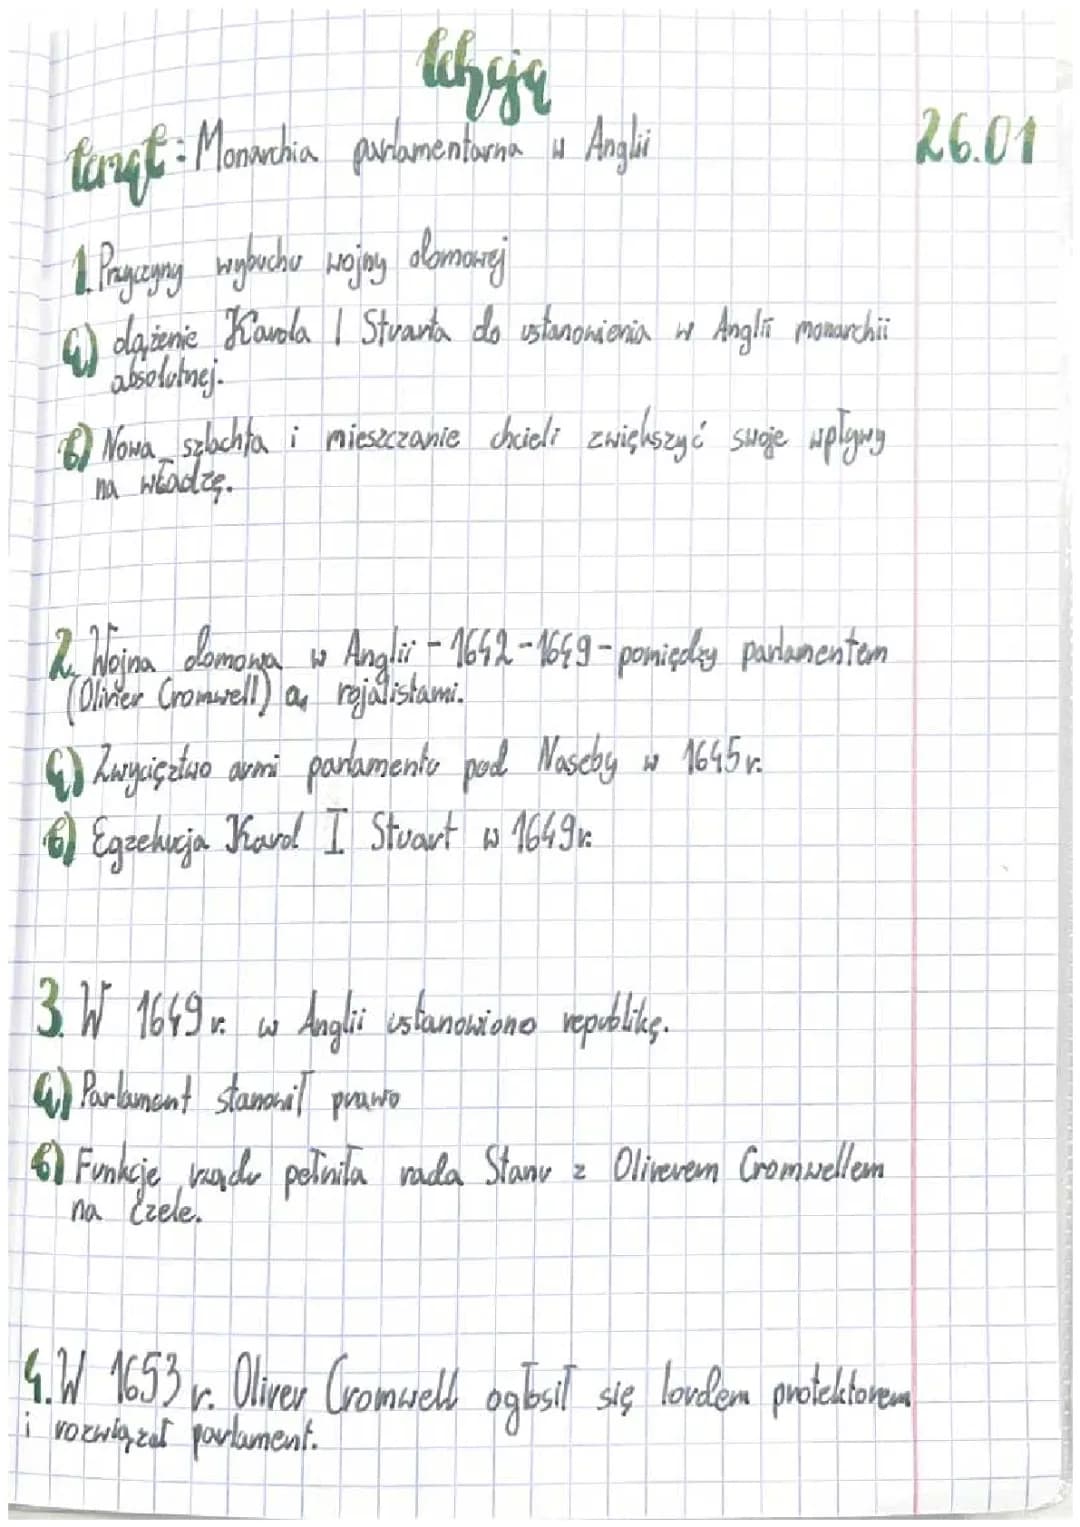 lekcja
temat: Monarchia parlamentarna w Anglii
26.01
1. Przyczyny wybuchu wojny domowej
a) dążenie Karola I Stuarta do ustanowienia w Anglii monarchii
absolutnej.
b) Nowa szlachta i mieszczanie chcieli zwiększyć swoje wpływy
na władzę.
2. Wojna domowa w Anglii - 1642-1649 - pomiędzy parlamentem
(Oliver Cromwell) a rojalistami.
a) Zwycięztwo armi parlamentu pod Naseby w 1645 r.
b) Egzekucja Karol I Stuart w 1649 r.
3. W 1649 r. w Anglii ustanowiono republikę.
a) Parlament stanowił prawo
b) Funkcje rządu pełniła rada Stanu z Oliverem Cromwellem
na czele.
4. W 1653 r. Oliver Cromwell ogłosił się lordem protektorem
i rozwiązał parlament.